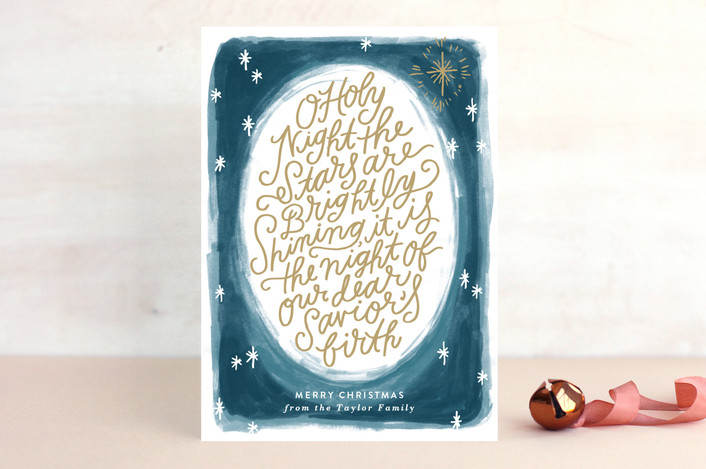 O Holy
Night the
Stars are
Brightly
Shining, it is
the night of
our dear
Savior's
birth
MERRY CHRISTMAS
from the Taylor Family